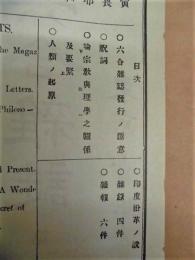 目次
○六合雜誌發行ノ趣意
○祝詞
○論宗教與理學之關係
及要緊
○人類ノ起原
○印度沿革ノ說
○雜錄 四件
○雜報 六件
TS.
he Magaz
Letters.
Philoso-
Present.
A Wonde
cret of